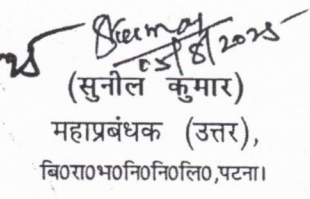 05/8/2025
(सुनील कुमार)
महाप्रबंधक (उत्तर),
बि0रा0भ0नि0नि0लि0,पटना।